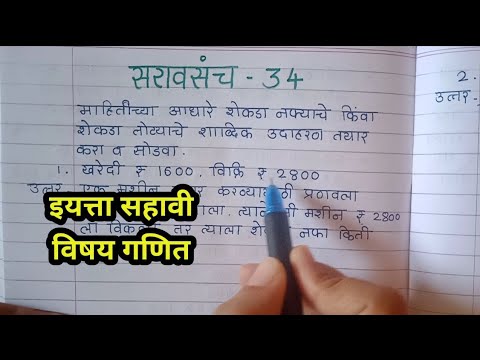 सरावसंच - 34
2.
उत्तर
माहितीच्या आधारे शेकडा नफ्याचे किंवा
शेकडा तोट्याचे शाब्दिक उदाहरण तयार
करा व सोडवा.
1. खरेदी ₹ 1600, विक्रि ₹ 2800
उत्तर एक मशीन करण्यासाठी प्रणवला
त्याने ती मशीन ₹ 2800
ला तर त्याला नफा किती
इयत्ता सहावी
विषय गणित